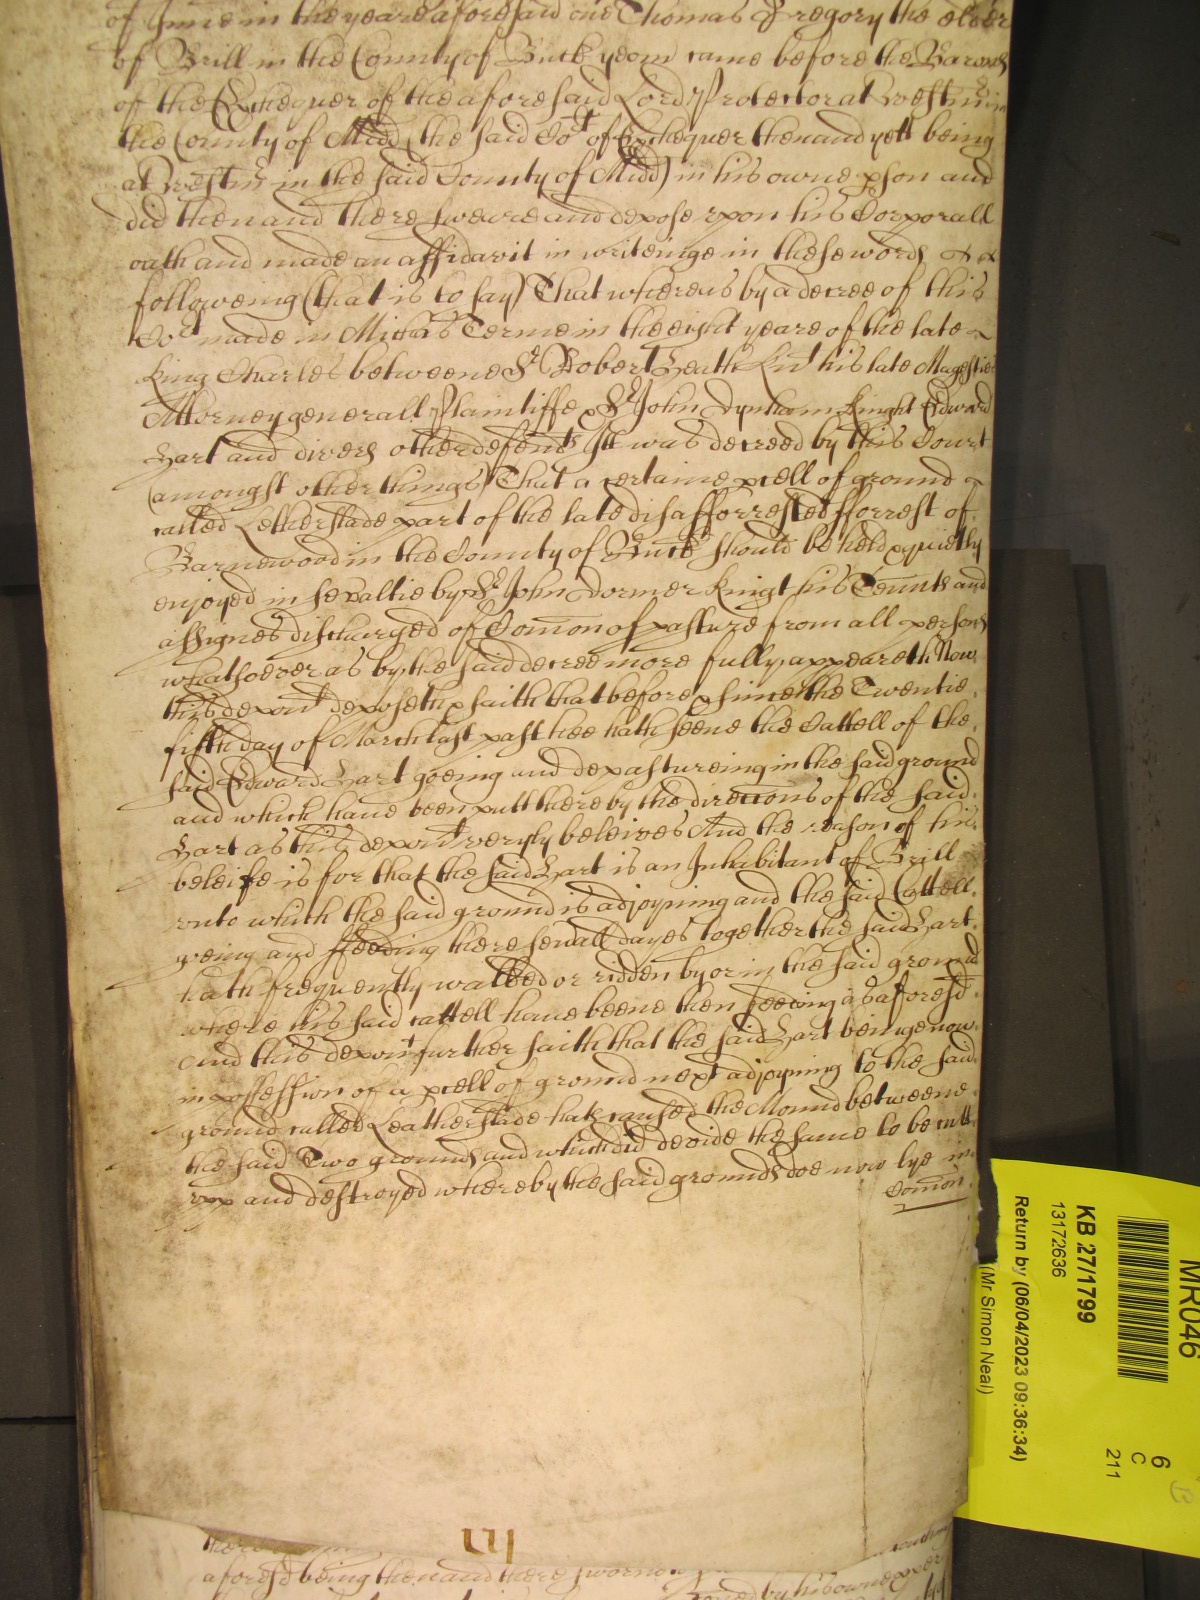 of June in the yeare aforesaid one Thomas Gregory the elder
of Brill in the County of Buck yeom came before the Barons
of the Exchequer of the aforesaid Lord Protector at Westm in
the County of Midd (the said Cot of Exchequer then and yett being
at Westm in the said County of Midd) in his owne pson and
did then and there sweare and depose upon his Corporall
oath and made an affidavit in writeinge in these words
followeing (that is to say) That whereas by a decree of this
Cot made in Michas Terme in the eight yeare of the late
King Charles betweene Sr Robert Heath Knt his late Magesties
Attorney generall Plaintiffe & Sr John Dynham Knight Edward
Hart and divers other defendts It was decreed by this Court
(amongst other things) That a certaine pcell of ground
called Letherslade part of the late disafforrested fforrest of
Barnewood in the County of Buck should be held & quietly
enjoyed in sevaltie by Sr John Dormer Knigt his Tennts and
assignes discharged of Comon of pasture from all persons
whatsoever as by the said decree more fully appeareth Now
this depont deposeth & saith that before & since the Twentie
fifth day of March last past hee hath seene the Cattell of the
said Edward Hart goeing and depastureing in the said ground
and which have been putt there by the direccons of the said
Hart as this depont veryly beleives And the reason of his
beleife is for that the said Hart is an Inhabitant of Brill
unto which the said ground is adjoyning and the said Cattell
goeing and ffeeding there sevall dayes together the said Hart
hath frequently walked or ridden by or in the said ground
where his said cattell have beene then feeding as aforesd
And this depont further saith that the said Hart beinge now
in possession of a pcell of ground next adjoyning to the said
ground called Leatherslade hath caused the Mound betweene
the said Two grounds and which did devide the same to be cutt
upp and destroyed whereby the said grounds doe now lye in
Comon
aforesd being then and there sworne
by his owne pper
MR046
KB 27/1799
13172636
Return by (06/04/2023 09:36:34)
(Mr Simon Neal)
6
C
211